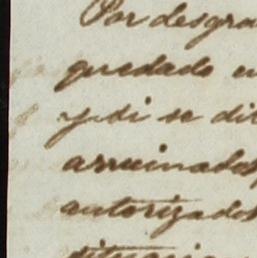 Por desgra
quedado en
y si se di
arruinados
autorizados